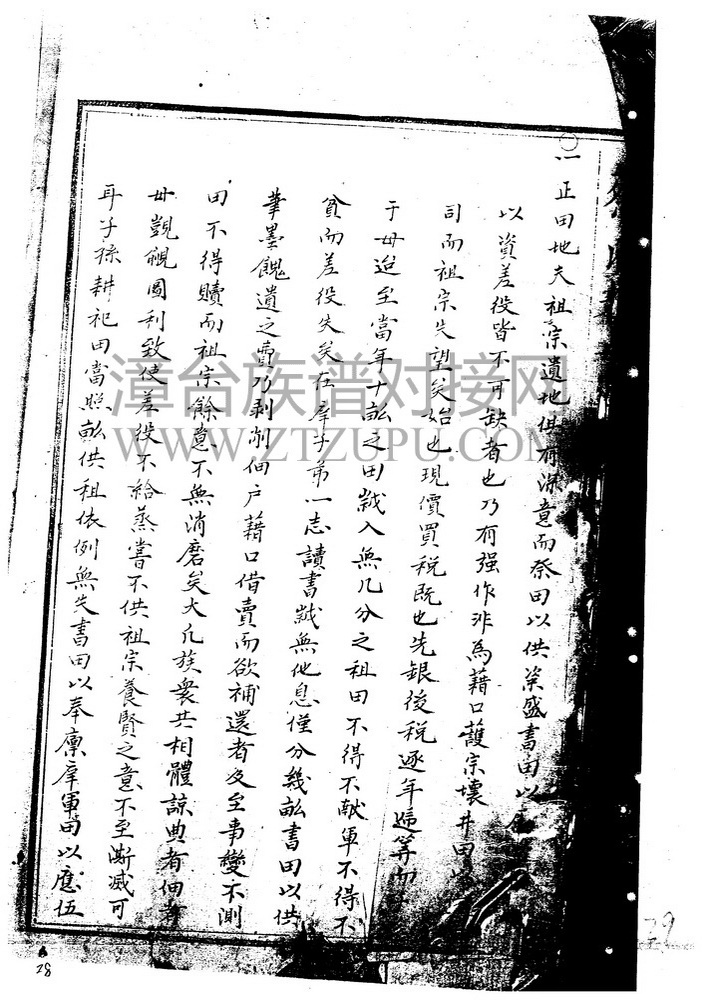 一正田地夫祖宗遺地俱有深意而祭田以供粢盛書田以
以資差役皆不可缺者也乃有强作非為藉口護宗壞井田
司而祖宗失望矣始也現價買税既也先銀後税逐年遞筭而
于毋迨至當年十畆之田誠入無几分之祖田不得不献軍不得不
貧而差役失矣在庠子弟一志讀書誠無他息僅分幾畆書田以供
筆墨餽遺之費乃剥削佃户藉口借賣而欲補還者及至事變不測
田不得贖而祖宗餘意不無消磨矣大凡族衆共相體諒典者佃者
毋覬覦圖利致使差役不給蒸嘗不供祖宗養賢之意不至漸滅可
耳子孫耕祀田當照畆供租依例無失書田以奉廪庠軍田以應伍
漳台族谱对接网
WWW.ZTZUPU.COM
28
29